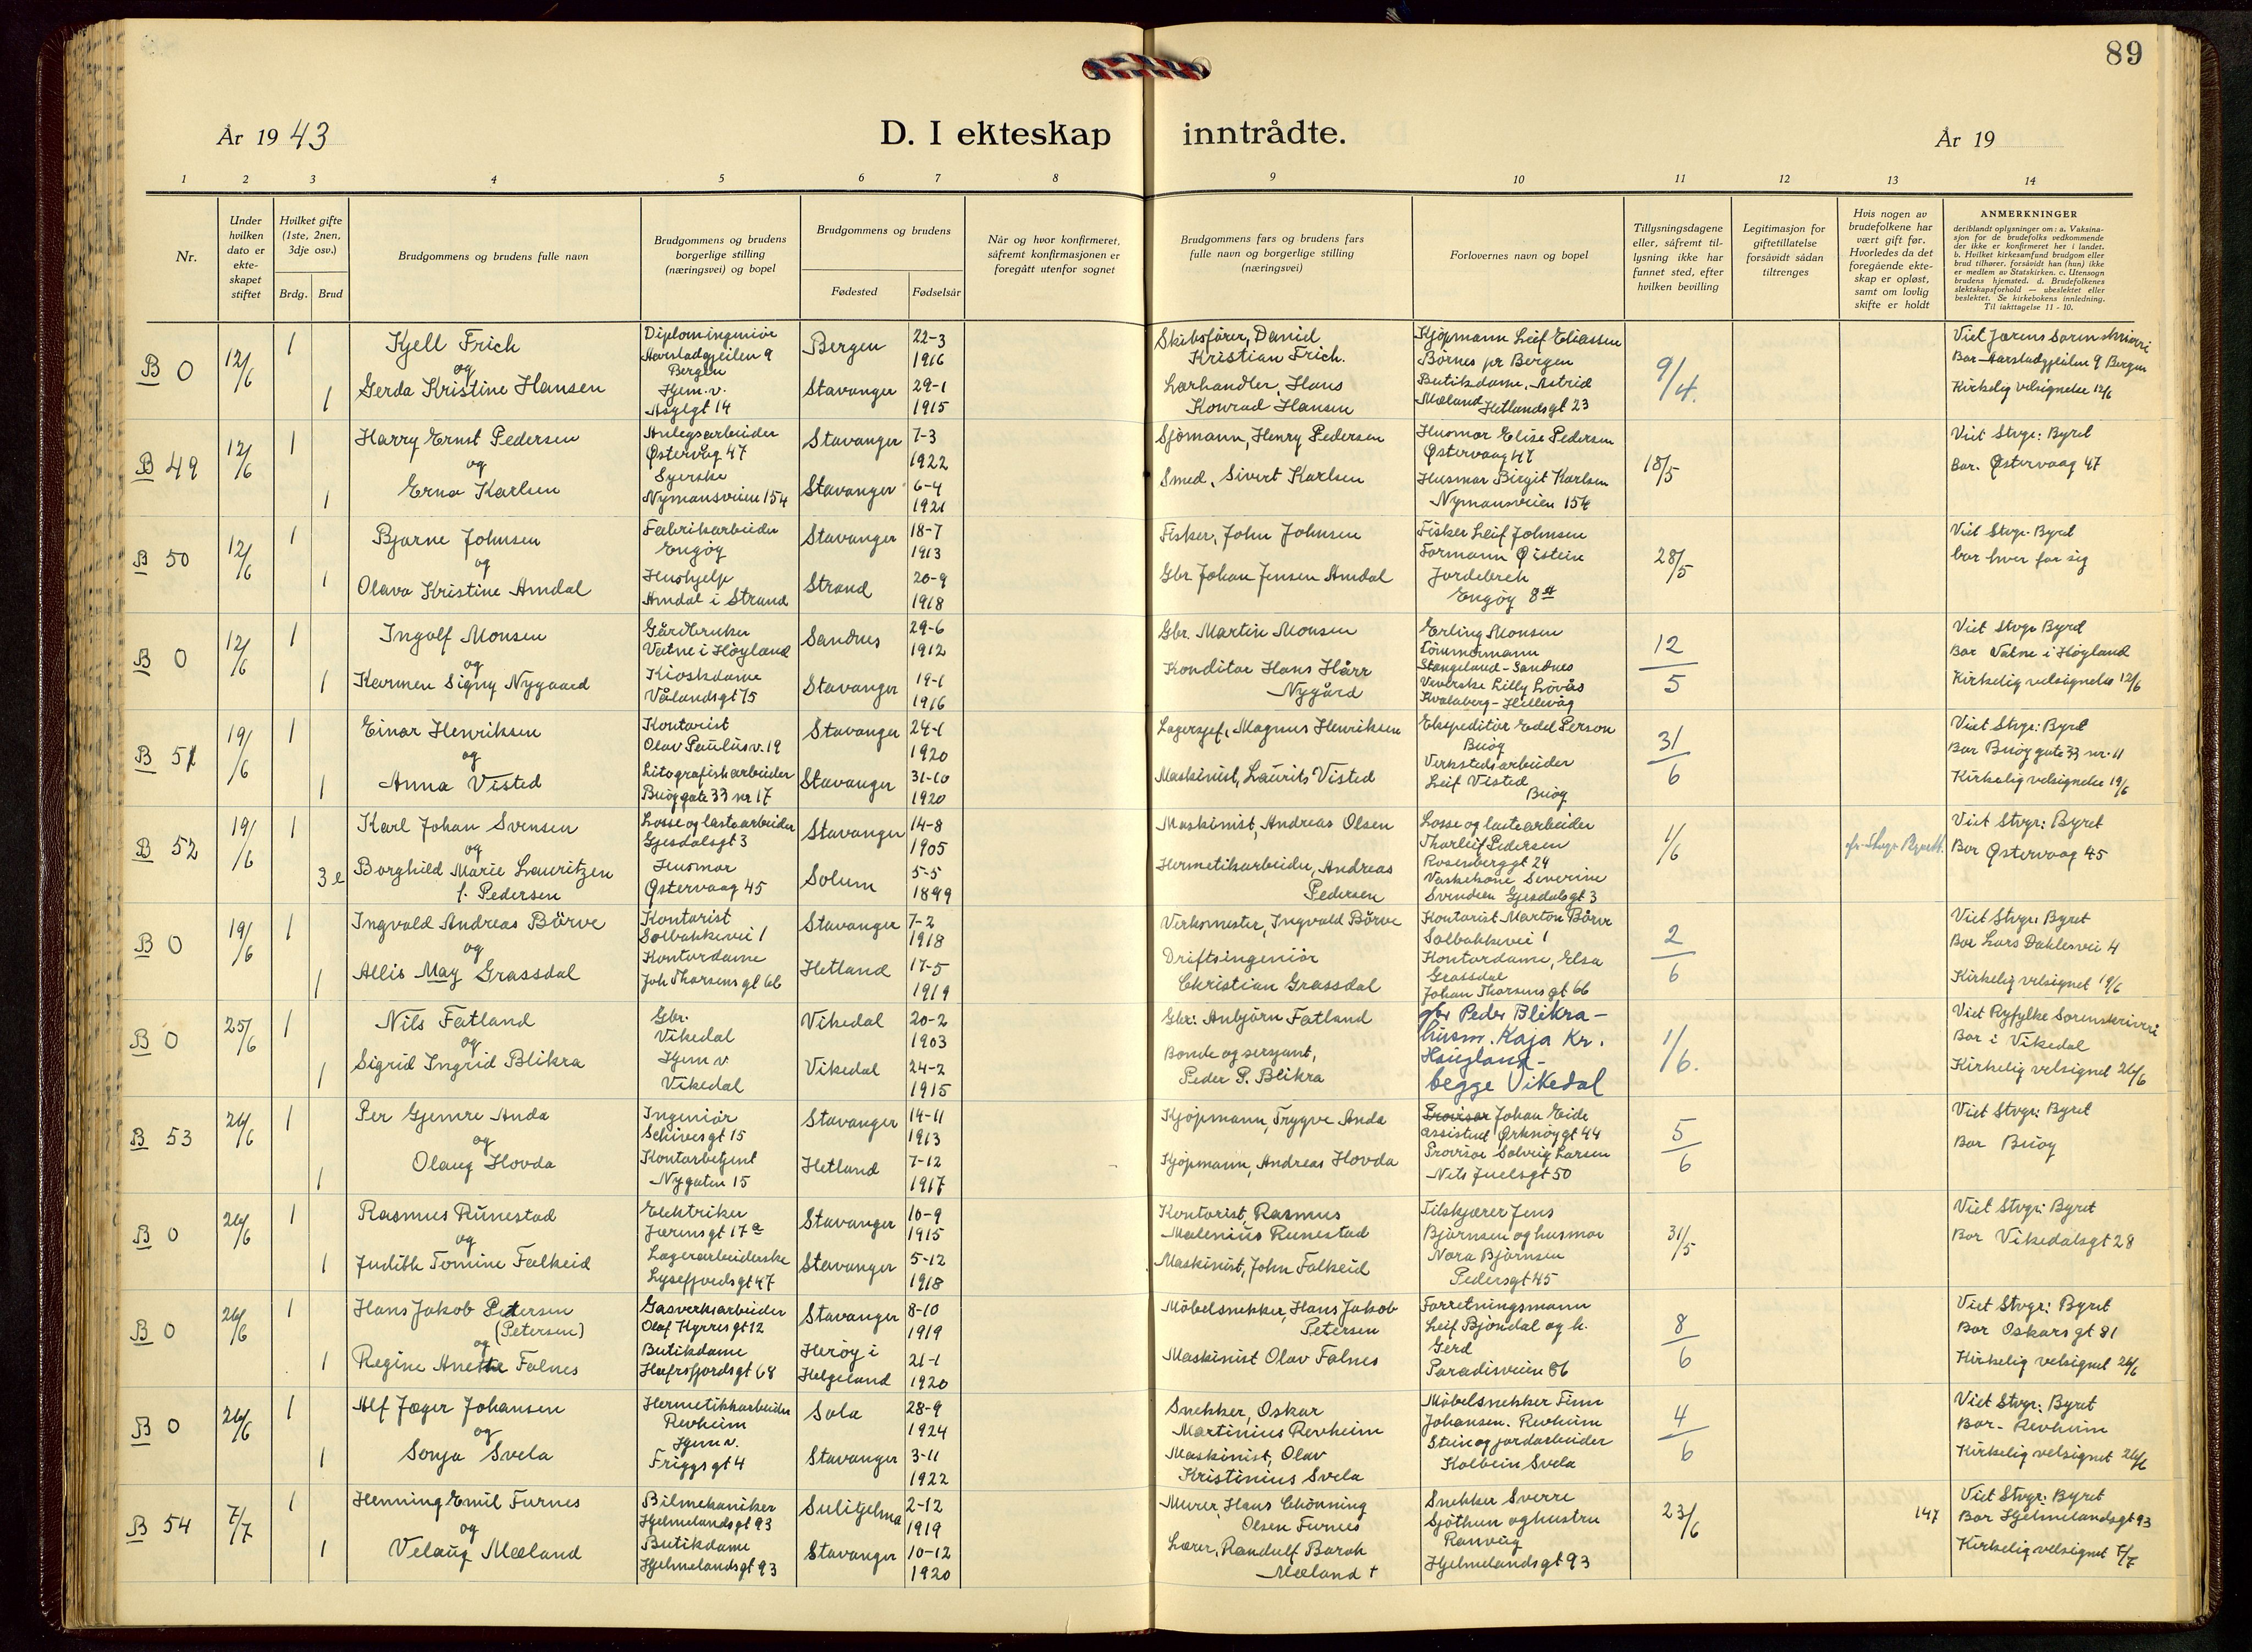 89
År 1943
D. I ekteskap inntrådte.
År 19
1 2 3 4 5 6 7 8 9 10 11 12 13 14
Nr.
Under hvilken dato er ekteskapet stiftet
Hvilket gifte (1ste, 2nen, 3dje osv.)
Brdg. Brud
Brudgommens og brudens fulle navn
Brudgommens og brudens borgerlige stilling (næringsvei) og bopel
Brudgommens og brudens
Fødested
Fødselsår
Når og hvor konfirmeret, såfremt konfirmasjonen er foregått utenfor sognet
Brudgommens fars og brudens fars fulle navn og borgerlige stilling (næringsvei)
Forlovernes navn og bopel
Tillysningsdagene eller, såfremt tillysning ikke har funnet sted, efter hvilken bevilling
Legitimasjon for giftetillatelse forsåvidt sådan tiltrenges
Hvis nogen av brudefolkene har vært gift før. Hvorledes da det foregående ekteskap er opløst, samt om lovlig skifte er holdt
ANMERKNINGER
deriblandt oplysninger om: a. Vaksinasjon for de brudefolks vedkommende der ikke er konfirmeret her i landet. b. Hvilket kirkesamfund brudgom eller brud tilhører, forsåvidt han (hun) ikke er medlem av Statskirken. c. Utensogn brudens hjemsted. d. Brudefolkenes slektskapsforhold — ubeslektet eller beslektet. Se kirkebokens innledning. Til iakttagelse 11 - 10.
B 0
12/6
1
Kjell Frich
og
1
Gerda Kristine Hansen
Diplomingeniør
Aarstadgeilen 9
Bergen
Hjem. v.
Asylgt 14
Bergen
22-3
1916
Stavanger
29-1
1915
Skibsfører, Daniel
Kristian Frich.
Lærhandler, Hans
Konrad Hansen
Kjøpmann Leif Eliassen
Børnes pr Bergen
Butikdame, Astrid
Mæland Hetlandsgt 23
9/4.
Viet Jærens Sorenskriveri
Bor Aarstadgeilen 9 Bergen
Kirkelig velsignelse 12/6
B 49
12/6
1
Harry Ernst Pedersen
og
1
Erna Karlsen
Anlegsarbeider
Østervåg 47
Syerske
Nymansveien 154
Stavanger
7-3
1922
Stavanger
6-4
1921
Sjømann, Henry Pedersen
Smed, Sivert Karlsen
Husmor Elise Pedersen
Østervaag 47
Husmor Birgit Karlsen
Nymansveien 154
18/5
Viet Stvgr: Byret
Bor. Østervaag 47
B 50
12/6
1
Bjarne Johnsen
og
1
Olava Kristine Amdal
Fabrikarbeider
Engøy
Hushjelp
Amdal i Strand
Stavanger
18-7
1913
Strand
20-9
1918
Fisker, John Johnsen
Gbr Johan Jensen Amdal
Fisker Leif Johnsen
Formann Øistein
Jordebrek
Engøy 8
28/5
Viet Stvgr. Byret
bor hver for sig
B 0
12/6
1
Ingolf Monsen
og
1
Karmen Signy Nygaard
Gårdbruker
Vatne i Høyland
Kioskdame
Vålandsgt 75
Sandnes
29-6
1912
Stavanger
19-1
1916
Gbr. Martin Monsen
Konditor Hans Hårr
Nygård
Erling Monsen
Tømmermann
Stangeland - Sandnes
Væverske Lilly Løvås
Kvaleberg - Hillevåg
12/5
Viet Stvgr Byret
Bor Vatne i Høyland
Kirkelig velsignelse 12/6
B 51
19/6
1
Einar Henriksen
og
1
Anna Visted
Kontorist
Olav Paulus v. 19
Litografiskarbeider
Buøygate 33 nr 17
Stavanger
24-1
1920
Stavanger
31-10
1920
Lagersjef, Magnus Henriksen
Maskinist, Laurits Visted
Ekspeditør Edel Person
Buøy
Verkstedsarbeider
Leif Visted
Buøy
31/6
Viet Stvgr: Byret
Bor Buøy gate 33 nr. 11
Kirkelig velsignelse 19/6
B 52
19/6
1
Karl Johan Svensen
og
3 e
Borghild Marie Lauritzen
f. Pedersen
Losse og lastearbeider
Gjesdalsgt 3
Husmor
Østervaag 45
Stavanger
14-8
1905
Solum
5-5
1899
Maskinist, Andreas Olsen
Hermetikarbeider, Andreas
Pedersen
Losse og lastearbeider
Thorleif Pedersen
Rosenberggt 24
Vaskekone Severine
Svendsen Gjesdalsgt 3
1/6
Viet Stvgr: Byret
Bor Østervaag 45
B 0
19/6
1
Ingvald Andreas Børve
og
1
Allis May Grassdal
Kontorist
Solbakkevei 1
Kontordame
Joh Thorsens gt 66
Stavanger
7-2
1918
Hetland
17-5
1919
Verksmester, Ingvald Børve
Driftsingeniør
Christian Grassdal
Kontorist Marton Børve
Solbakkevei 1
Kontordame, Elsa
Grassdal
Johan Thorsens gt 66
2/6
Viet Stvgr: Byret
Bor Lars Dahlesvei 4
Kirkelig velsignet 19/6
B 0
25/6
1
Nils Fatland
og
1
Sigrid Ingrid Blikra
Gbr.
Vikedal
Hjem v
Vikedal
Vikedal
20-2
1903
Vikedal
24-2
1915
Gbr: Anbjørn Fatland
Bonde og sersjant,
Peder P. Blikra
gbr Peder Blikra -
husm. Kaja Kr.
Haugland -
begge Vikedal
1/6.
Viet Ryfylke Sorenskriveri
Bor i Vikedal
Kirkelig velsignet 26/6
B 53
26/6
1
Per Gjemre Anda
og
1
Olaug Hovda
Ingeniør
Schivesgt 15
Kontorbetjent
Nygaten 15
Stavanger
14-11
1913
Hetland
7-12
1917
Kjøpmann, Trygve Anda
Kjøpmann, Andreas Hovda
Provisor Johan Eide
assistent Ørknøygt 44
Provisor Solveig Larsen
Nils Juelsgt 50
5/6
Viet Stvgr: Byret
Bor Buøy
B 0
26/6
1
Rasmus Runestad
og
1
Judith Tomine Falkeid
Elektriker
Jærensgt 17a
Lagerarbeiderske
Lysefjordsgt 47
Stavanger
10-9
1915
Stavanger
5-12
1918
Kontorist, Rasmus
Malenius Runestad
Maskinist, John Falkeid
Tilskjærer Jens
Bjørnsen og husmor
Nora Bjørnsen
Pedersgt 45
31/5
Viet Stvgr: Byret
Bor Vikedalsgt 28
B 0
26/6
1
Hans Jakob Petersen
(Petersen)
og
1
Regine Anette Falnes
Gasverksarbeider
Olaf Kyrresgt 12
Butikdame
Hafrsfjordsgt 68
Stavanger
8-10
1919
Herøy i
Helgeland
21-1
1920
Møbelsnekker, Hans Jakob
Petersen
Maskinist Olav Falnes
Forretningsmann
Leif Bjøndal og h.
Gerd
Paradisveien 86
8/6
Viet Stvgr: Byret
Bor Oskarsgt 81
Kirkelig velsignet 26/6
B 0
26/6
1
Alf Jæger Johansen
og
1
Sonja Svela
Hermetikkarbeider
Revheim
Hjem v.
Friggsgt 4
Sola
28-9
1924
Stavanger
3-11
1922
Snekker, Oskar
Martinius Revheim
Maskinist, Olav
Kristinius Svela
Møbelsnekker Finn
Johansen. Revheim
Stein og jordarbeider
Kolbein Svela
4/6
Viet Stvgr: Byret
Bor - Revheim
Kirkelig velsignet 26/6
B 54
7/7
1
Henning Emil Furnes
og
1
Velaug Mæland
Bilmekaniker
Hjelmelandsgt 93
Butikdame
Hjelmelandsgt 93
Sulitjelma
2-12
1919
Stavanger
10-12
1920
Murer, Hans
Olsen Furnes
Lærer, Randulf Barok
Mæland †
Snekker Sverre
Sjøthun og hustru
Ranveig
Hjelmelandsgt 93
23/6
147
Viet Stvgr: Byret
Bor Hjelmelandsgt 93
Kirkelig velsignet 7/7